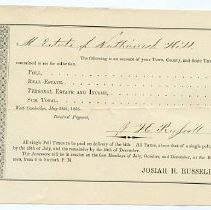 M Estate of Nathaniel Hill
The following is an account of your Town, County, and State Taxes
committed to me for collection.
Poll,
Real Estate,
Personal Estate and Income,
Sum Total,
West Cambridge, May 1855.
Received Payment,
J. H. Russell
All single Poll Taxes to be paid on delivery of the bill. All Taxes above that of a single poll
by the 10th of July, and the remainder by the 10th of December.
The Assessors will be in session on the last Mondays of July, October, and December, at the
from 4 to 6 o'clock, P. M.
JOSIAH H. RUSSELL